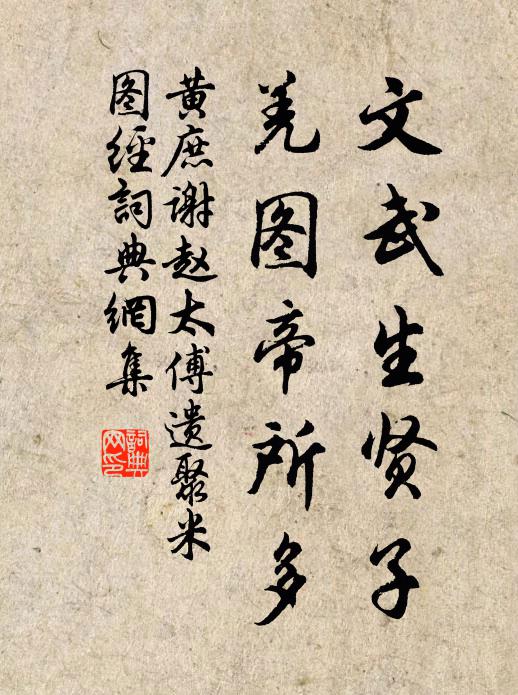 文武生贤子
羌图帝所多
黄庶谢赵太傅遗聚米
图经詞典網集
詞典
网印